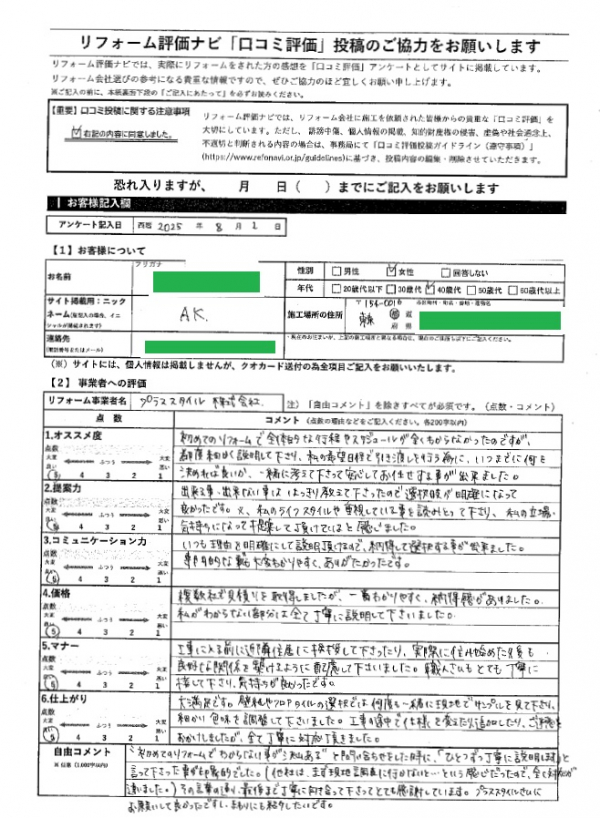 リフォーム評価ナビ「口コミ評価」投稿のご協力をお願いします
リフォーム評価ナビでは、実際にリフォームをされた方の感想を「口コミ評価」アンケートとしてサイトに掲載しています。
リフォーム会社選びの参考になる貴重な情報ですので、ぜひご協力のほど宜しくお願い申し上げます。
※ご記入の前に、本紙裏面下段の「ご記入にあたって」を必ずお読みください。
【重要】口コミ投稿に関する注意事項
右記の内容に同意しました。
リフォーム評価ナビでは、リフォーム会社に施工を依頼された皆様からの貴重な「口コミ評価」を
大切にしています。ただし、誹謗中傷、個人情報の掲載、知的財産権の侵害、虚偽や社会通念上、
不適切と判断される内容の場合は、事務局にて「口コミ評価投稿ガイドライン（遵守事項）」
(https://www.refonavi.or.jp/guidelines)に基づき、投稿内容の編集・削除させていただきます。
恐れ入りますが、　　月　　日（　）までにご記入をお願いします
お客様記入欄
アンケート記入日 西暦 2025 年 8 月 1 日
【1】お客様について
フリガナ
お名前
性別 男性 女性 回答しない
年代 20歳代以下 30歳代 40歳代 50歳代 60歳代以上
サイト掲載用：ニックネーム
A.K.
施工場所の住所
〒154-001
東京 都
連絡先
(電話番号またはメール)
（※）サイトには、個人情報は掲載しませんが、クオカード送付の為全項目ご記入をお願いいたします。
【2】事業者への評価
リフォーム事業者名 プラススタイル株式会社
注）「自由コメント」を除きすべてが必須です。（点数・コメント）
点 数
コメント（点数の理由などをご記入ください。各200字以内）
1.オススメ度
点数
大変良い ふつう 大変悪い
5 4 3 2 1
初めてのリフォームで全体的な行程やスケジュールが全くわからなかったのですが、
都度細かく説明して下さり、私の希望日程で引き渡しを行う為に、いつまでに何を
決めれば良いか、一緒に考えて下さって安心してお任せする事が出来ました。
2.提案力
点数
大変良い ふつう 大変悪い
5 4 3 2 1
出来る事・出来ない事は はっきり教えて下さったので選択肢が明確になって
良かったです。又、私のライフスタイルや重視している事を読みとって下さり、私の立場・
気持ちになって提案して頂けていると感じました。
3.コミュニケーション力
点数
大変良い ふつう 大変悪い
5 4 3 2 1
いつも理由を明確にして説明頂けるので、納得して選択する事が出来ました。
専門的な事も大変わかりやすく、ありがたかったです。
4.価格
点数
大変良い ふつう 大変悪い
5 4 3 2 1
複数社で見積りを取得しましたが、一番わかりやすく、納得感がありました。
私がわからない部分は全て丁寧に説明して下さいました。
5.マナー
点数
大変良い ふつう 大変悪い
5 4 3 2 1
工事に入る前に近隣住居に挨拶して下さったり、実際に住み始めた後も
良好な関係を築けるように配慮して下さいました。職人さんもとても丁寧に
接して下さり、気持ちが良かったです。
6.仕上がり
点数
大変良い ふつう 大変悪い
5 4 3 2 1
大満足です。壁紙やフロアタイルの選択では何度も一緒に現地でサンプルを見て下さり、
細かい色味を調整して下さいました。工事の途中で仕様を変えたり追加したり、ご迷惑を
おかけしましたが、全て丁寧に対応頂きました。
自由コメント
※任意（1,000字以内）
"初めてのリフォームでわからない事が沢山ある"と問い合わせをした時に、「ひとつずつ丁寧に説明します」と
言って下さった事が印象的でした。（他社は、まず現地調査に行かないと…という感じだったので、全く対応が
違いました。）その言葉の通り、最後まで丁寧に向き合って下さってとても感謝しています。プラススタイルさんに
お願いして良かったですし、まわりにも紹介したいです。